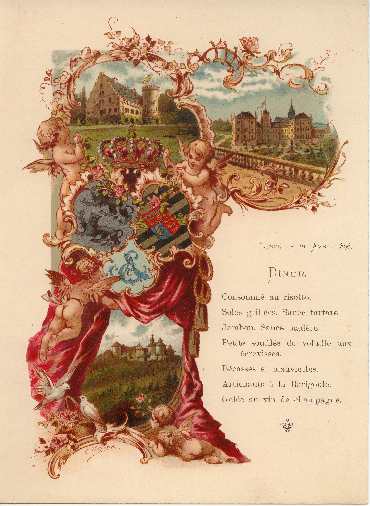 Dîner.
Consommé au risotto.
Soles grillées. Sauce tartare.
Jambon. Sauce madère.
Petits soufflés de volaille aux
écrevisses.
Bécasses et
Artichauts à la Barigoule.
Gelée au vin de champagne.